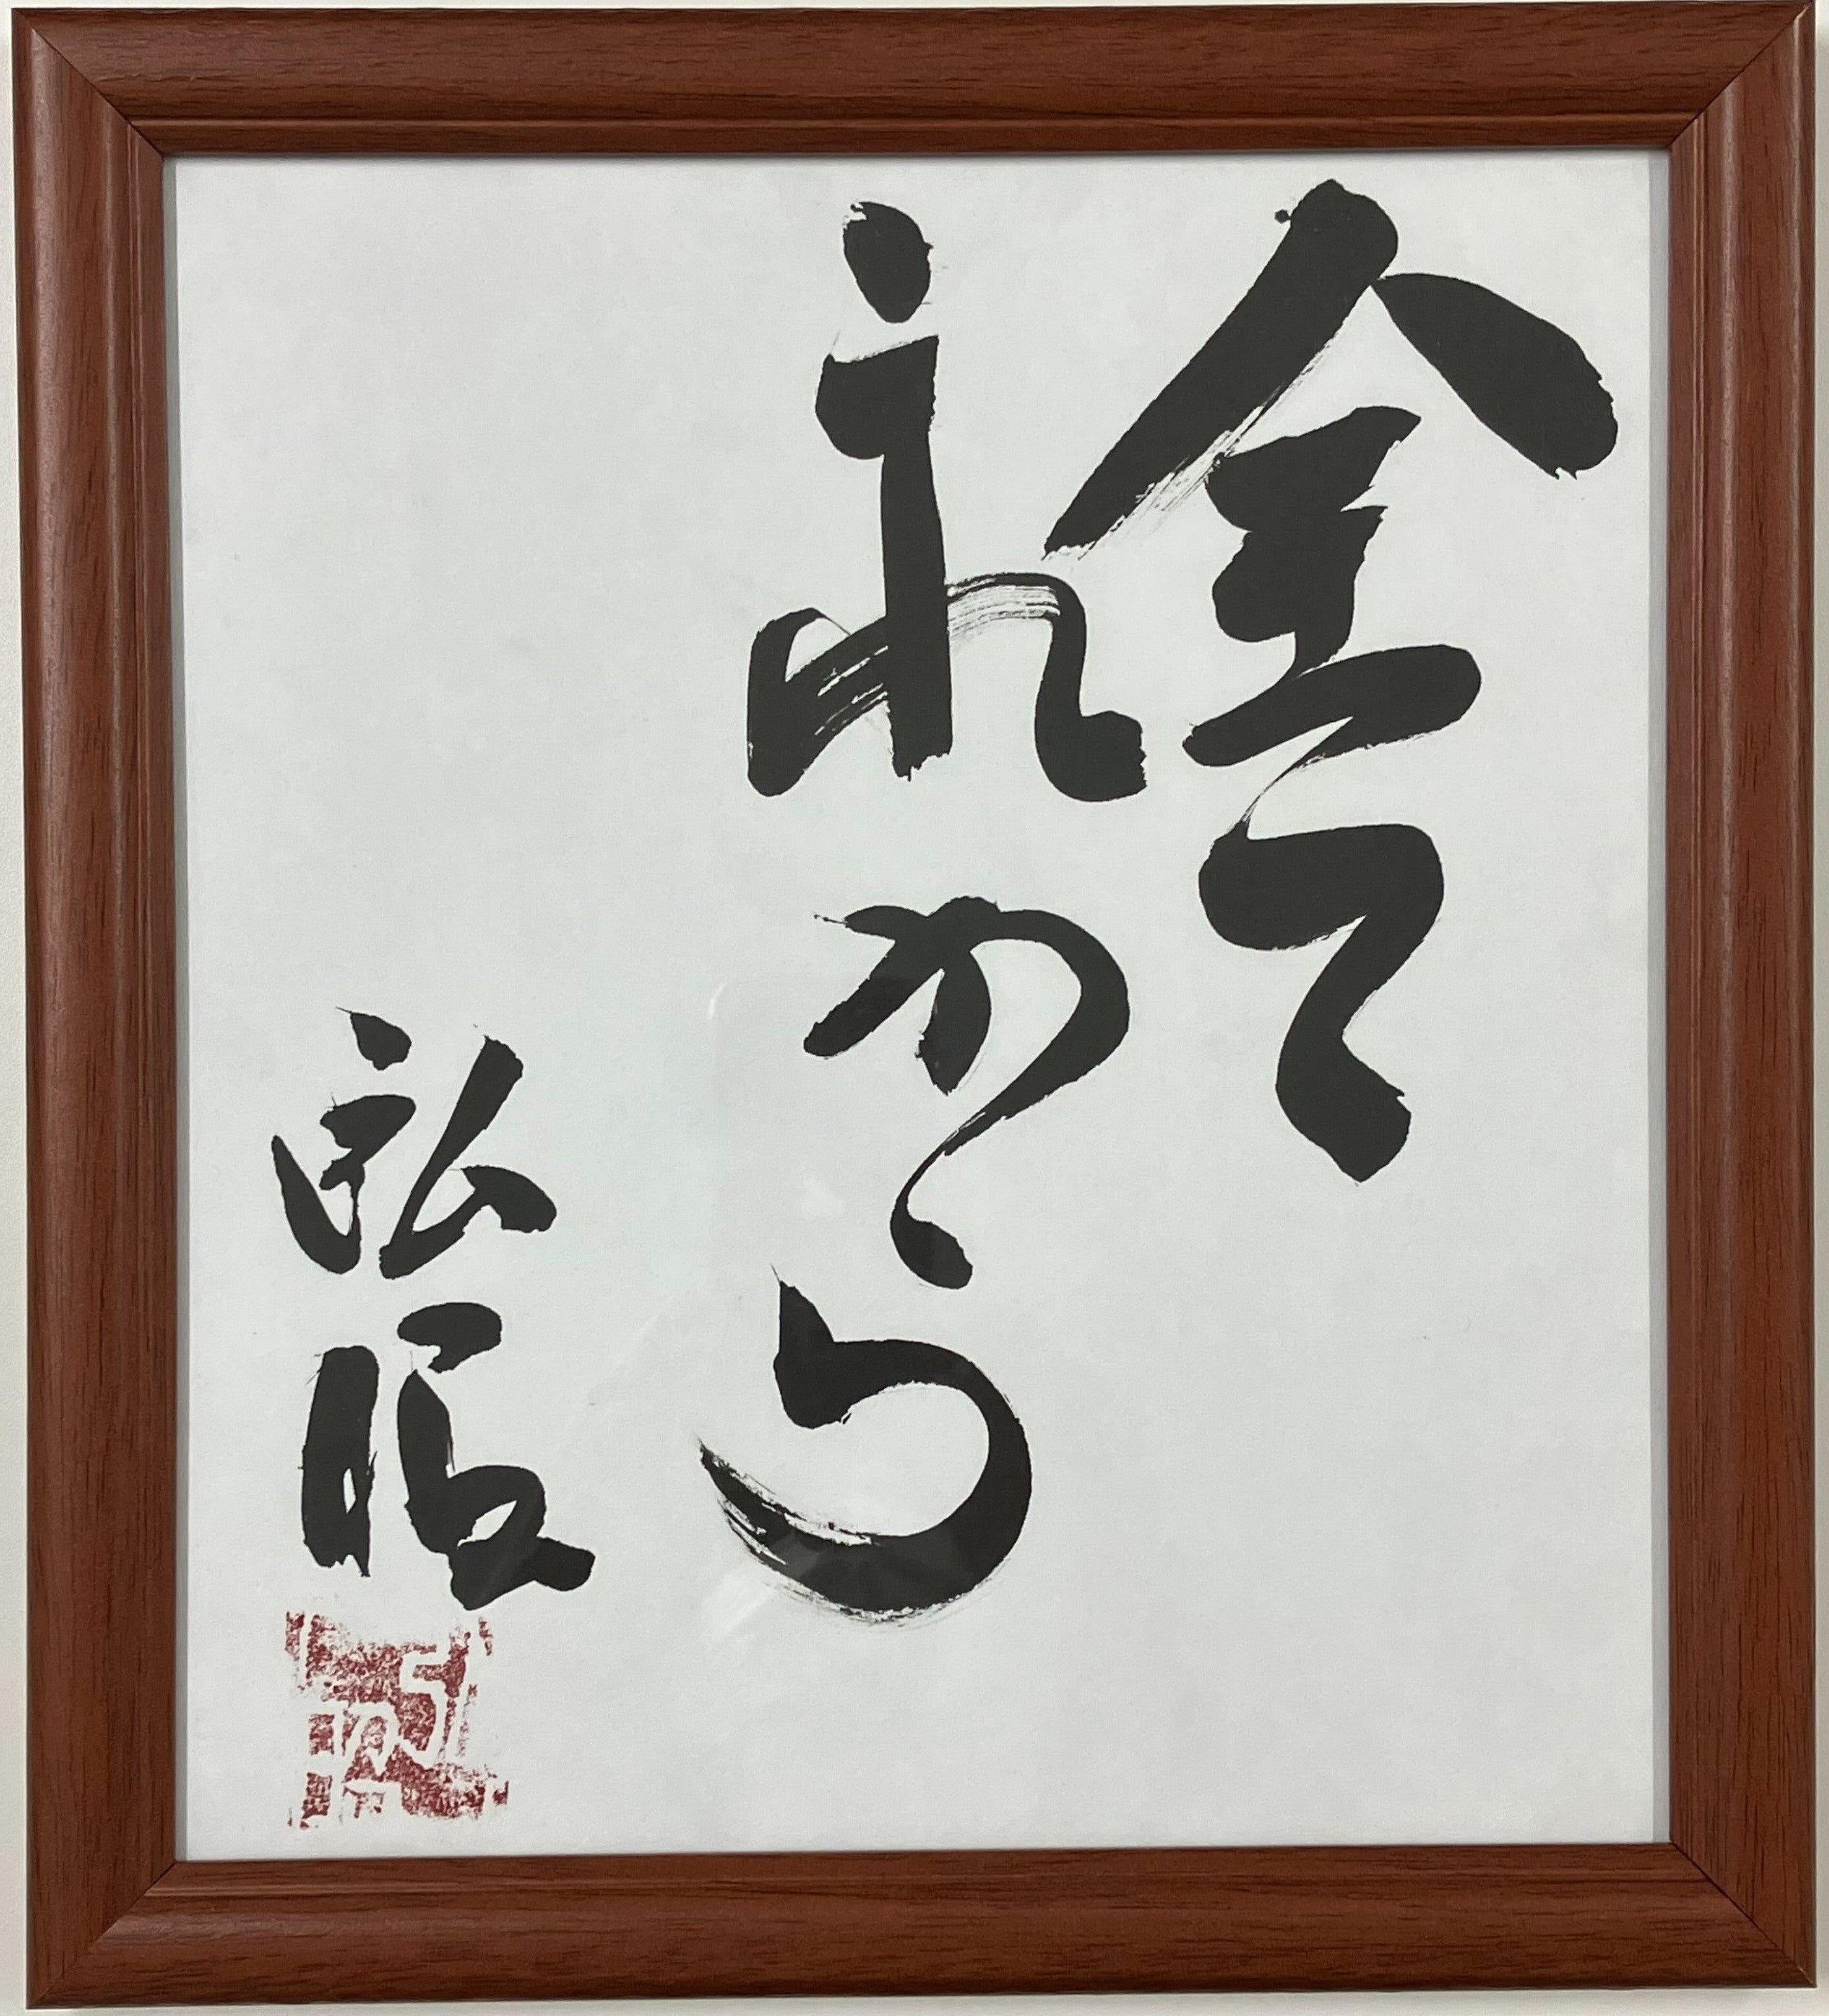 全て
これから
弘昭